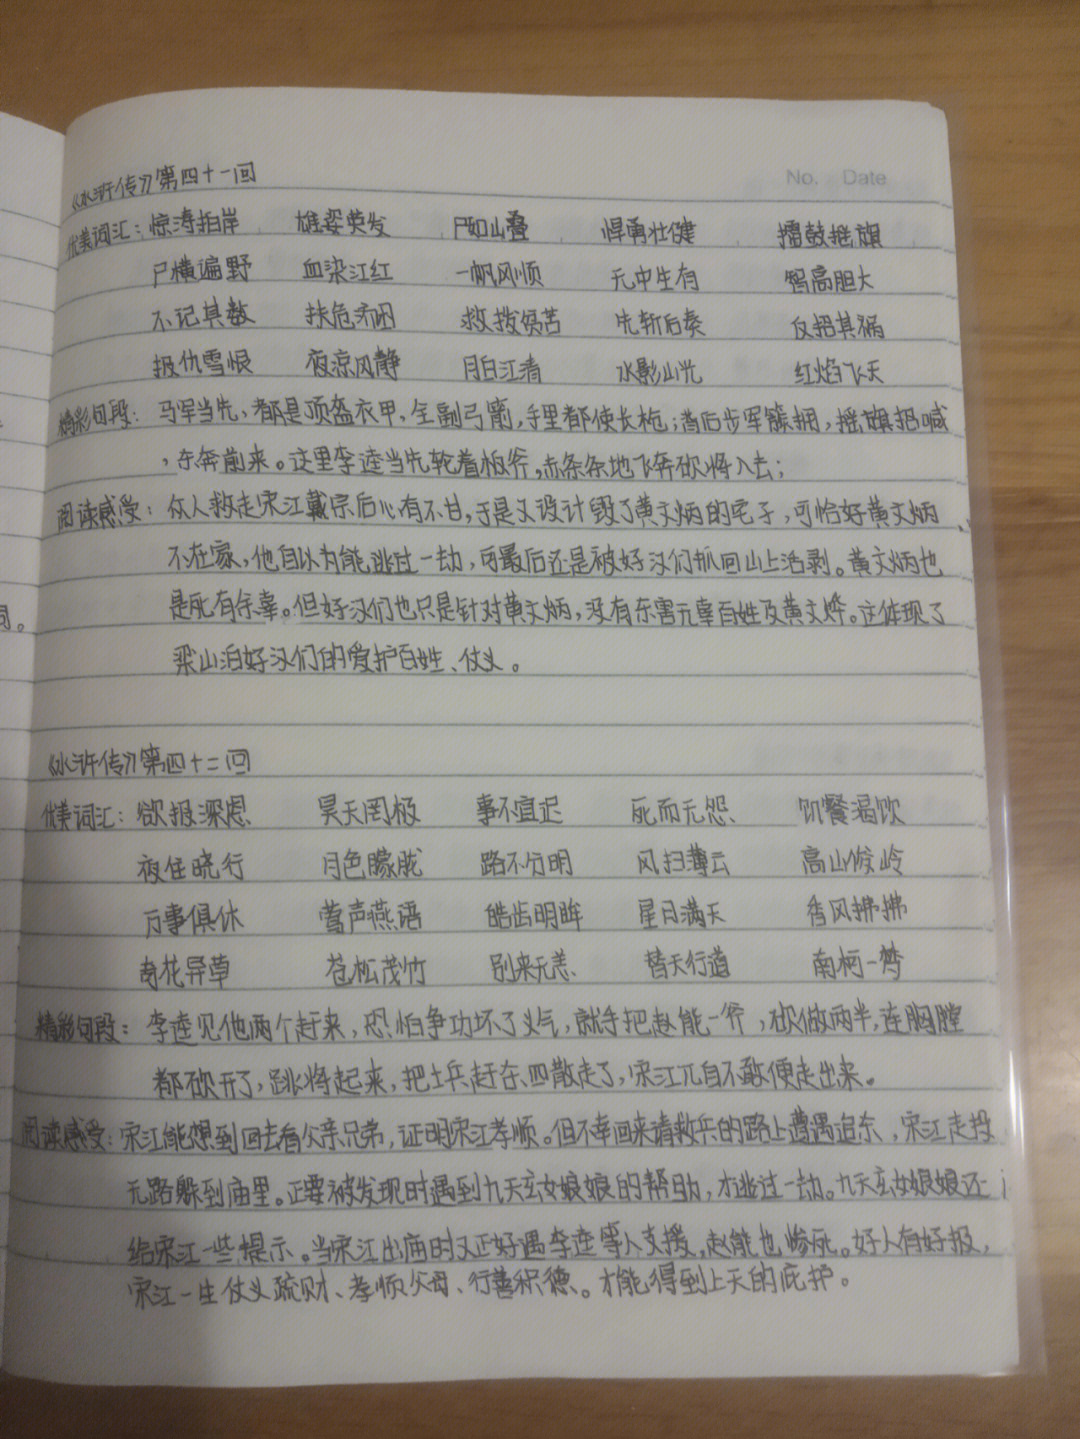 No. Date
《水浒传》第四十一回
优美词汇：惊涛拍岸 雄姿英发 尸如山叠 悍勇壮健 擂鼓摇旗
尸横遍野 血染江红 一帆风顺 无中生有 智高胆大
不记其数 扶危济困 救拔贫苦 先斩后奏 反招其祸
报仇雪恨 夜凉风静 月白江清 水影山光 红焰飞天
精彩句段：马军当先，都是顶盔衣甲，全副弓箭，手里都使长枪；背后步军簇拥，摇旗招喊
，东奔前来。这里李逵当先轮着板斧，赤条条地飞奔砍将入去；
阅读感受：众人救走宋江戴宗后心有不甘，于是又设计毁了黄文炳的宅子，可恰好黄文炳
不在家，他自以为能逃过一劫，可最后还是被好汉们抓回山上活剥。黄文炳也
是死有余辜。但好汉们也只是针对黄文炳，没有东害无辜百姓及黄文烨。这体现了
梁山泊好汉们的爱护百姓、仗义。
《水浒传》第四十二回
优美词汇：欲报深恩 昊天罔极 事不宜迟 死而无怨 饥餐渴饮
夜住晓行 月色朦胧 路不分明 风扫薄云 高山峻岭
万事俱休 莺声燕语 皓齿明眸 星月满天 香风拂拂
奇花异草 苍松茂竹 别来无恙 替天行道 南柯一梦
精彩句段：李逵见他两个赶来，恐怕争功坏了义气，就手把赵能一斧，砍做两半，连胸膛
都砍开了，跳将起来，把士兵赶杀，四散走了，宋江兀自不敢便走出来。
阅读感受：宋江能想到回去看父亲兄弟，证明宋江孝顺。但不幸回来请救兵的路上遭遇追杀，宋江走投
无路躲到庙里。正要被发现时遇到九天玄女娘娘的帮助，才逃过一劫。九天玄女娘娘还
给宋江一些提示。当宋江出庙时又正好遇李逵等人支援，赵能也惨死。好人有好报，
宋江一生仗义疏财、孝顺父母、行善积德。才能得到上天的庇护。